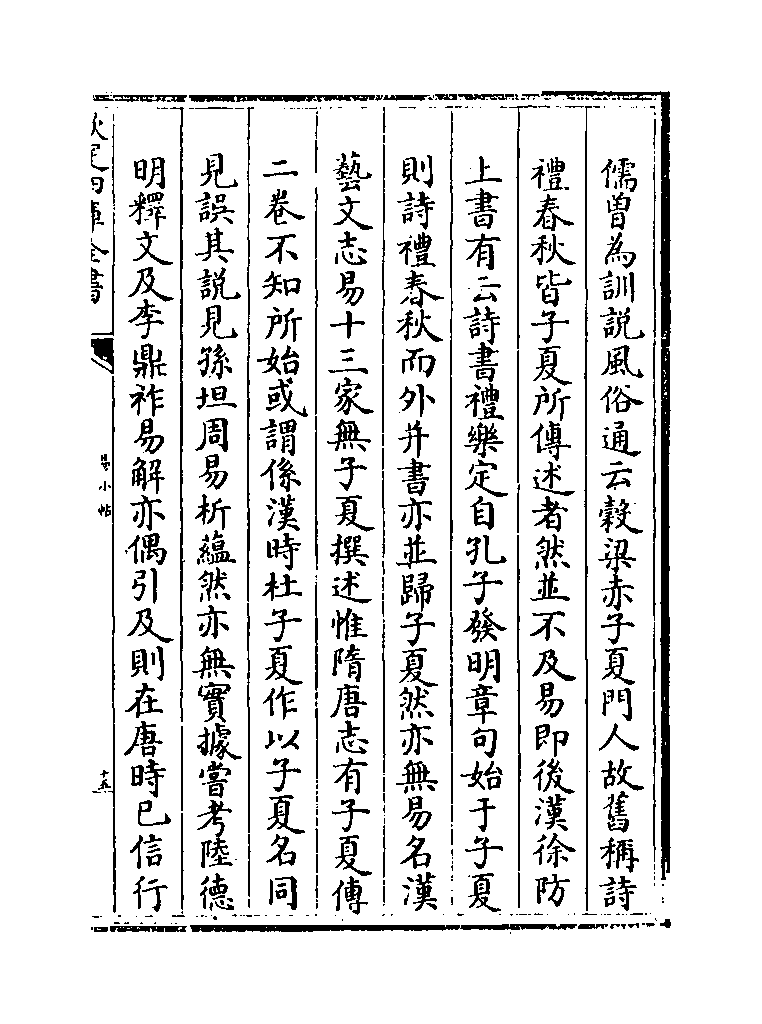 儒曽為訓説風俗通云穀梁赤子夏門人故舊稱詩
禮春秋皆子夏所傳述者然並不及易即後漢徐防
上書有云詩書禮樂定自孔子發明章句始于子夏
則詩禮春秋而外并書亦並歸子夏然亦無易名漢
藝文志易十三家無子夏撰述惟隋唐志有子夏傳
二卷不知所始或謂係漢時杜子夏作以子夏名同
見誤其説見孫坦周易析藴然亦無實據嘗考陸德
明釋文及李鼎祚易解亦偶引及則在唐時已信行
欽定四庫全書
易小帖
十五